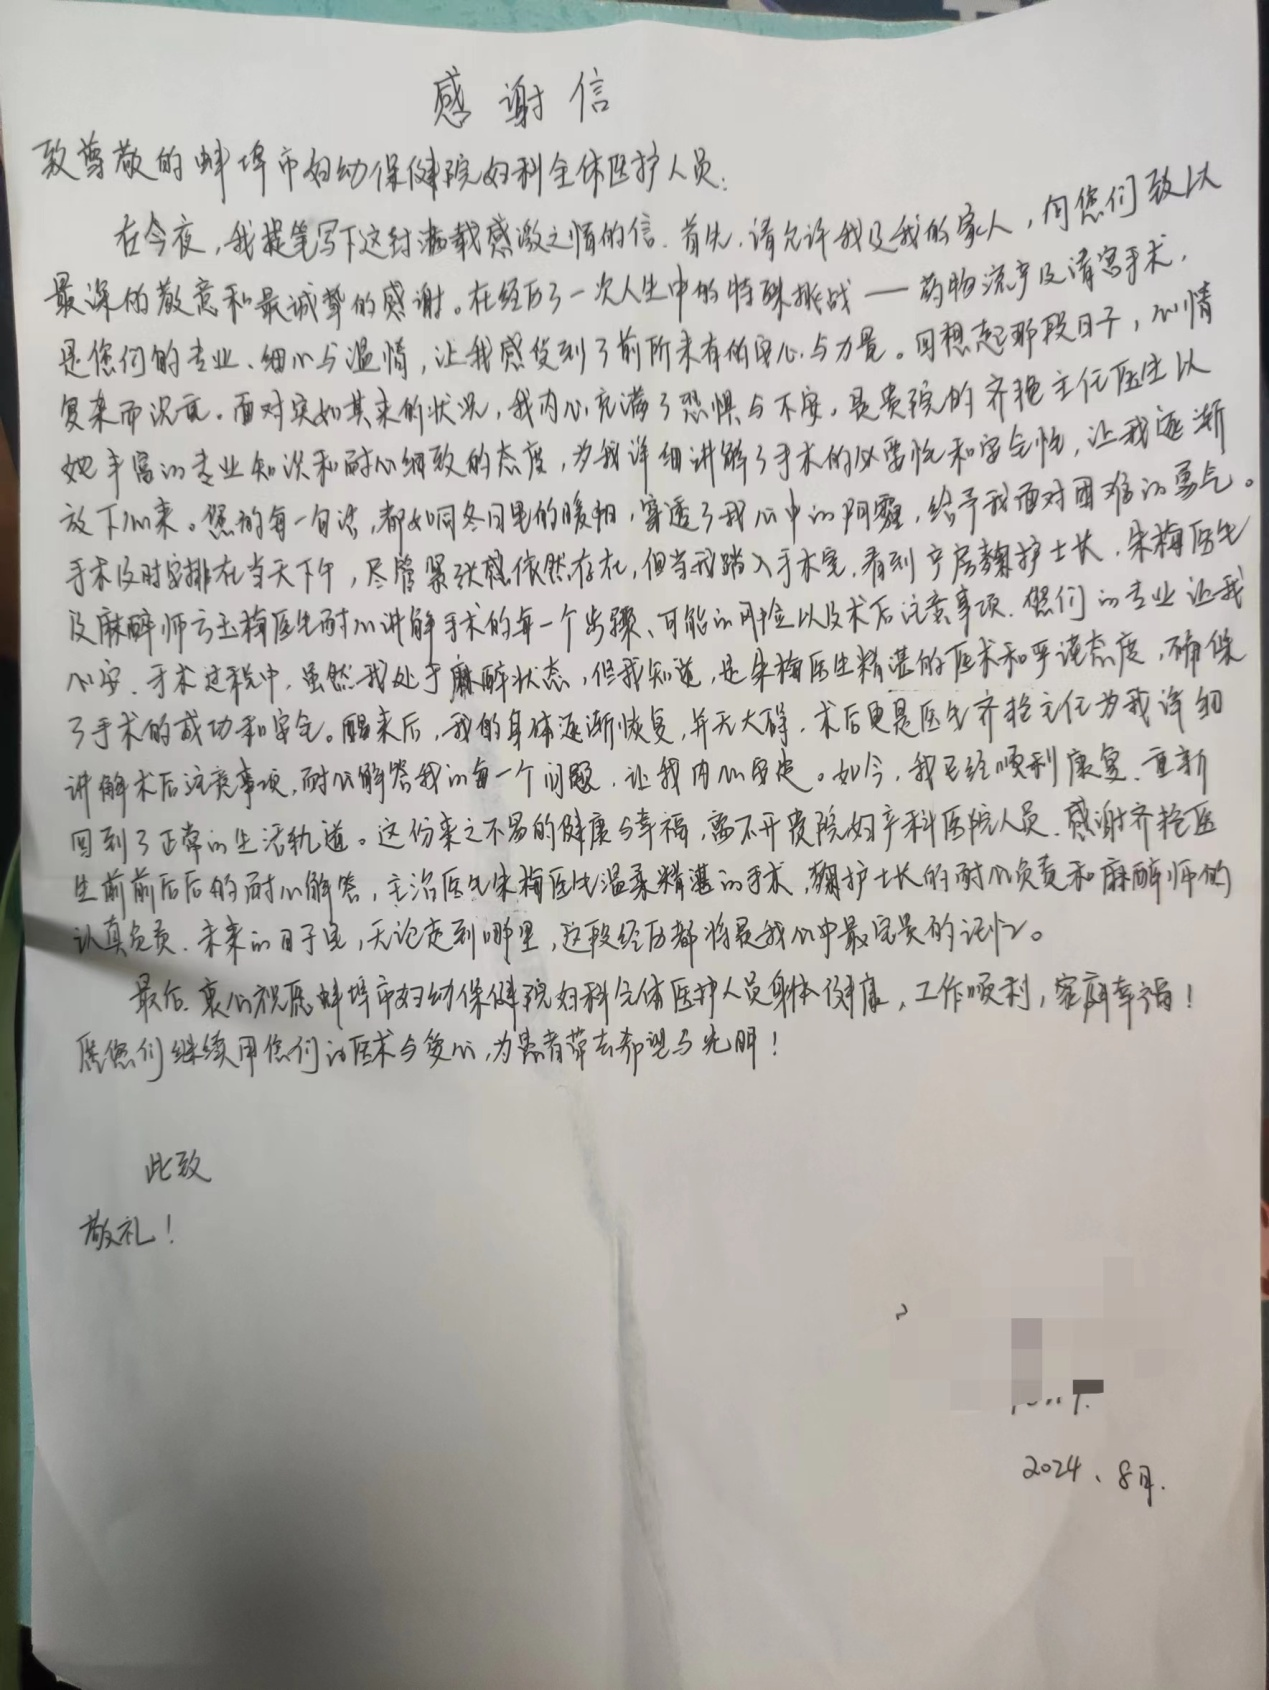 感谢信
致尊敬的蚌埠市妇幼保健院妇科全体医护人员:
在今夜,我提笔写下这封满载感激之情的信。首先,请允许我及我的家人,向您们致以
最深的敬意和最诚挚的感谢。在经历了一次人生中的特殊挑战——药物流产及清宫手术,
是您们的专业、细心与温情,让我感受到了前所未有的安心与力量。回想起那段日子,心情
复杂而沉重。面对突如其来的状况,我内心充满了恐惧与不安,是贵院的齐艳主任医生以
她丰富的专业知识和耐心细致的态度,为我详细讲解了手术的必要性和安全性,让我逐渐
放下心来。您的每一句话,都如同冬日里的暖阳,穿透了我心中的阴霾,给予我面对困难的勇气。
手术及时安排在当天下午,尽管紧张感依然存在,但当我踏入手术室,看到产房魏护士长、朱梅医生
及麻醉师玉梅医生耐心讲解手术的每一个步骤、可能的风险以及术后注意事项,您们的专业让我
心安。手术过程中,虽然我处于麻醉状态,但我知道,是朱梅医生精湛的医术和严谨态度,确保
了手术的成功和安全。醒来后,我的身体逐渐恢复,并无大碍,术后更是医生齐艳主任为我详细
讲解术后注意事项,耐心解答我的每一个问题,让我内心安定。如今,我已经顺利康复,重新
回到了正常的生活轨道。这份来之不易的健康与幸福,离不开贵院妇产科医院人员,感谢齐艳医
生前前后后的耐心解答,主治医生朱梅医生温柔精湛的手术,魏护士长的耐心负责和麻醉师的
认真负责。未来的日子里,无论走到哪里,这段经历都将是我心中最宝贵的记忆。
最后,衷心祝愿蚌埠市妇幼保健院妇科全体医护人员身体健康,工作顺利,家庭幸福!
愿您们继续用您们的医术与爱心,为患者带去希望与光明!
此致
敬礼!
2024、8月.